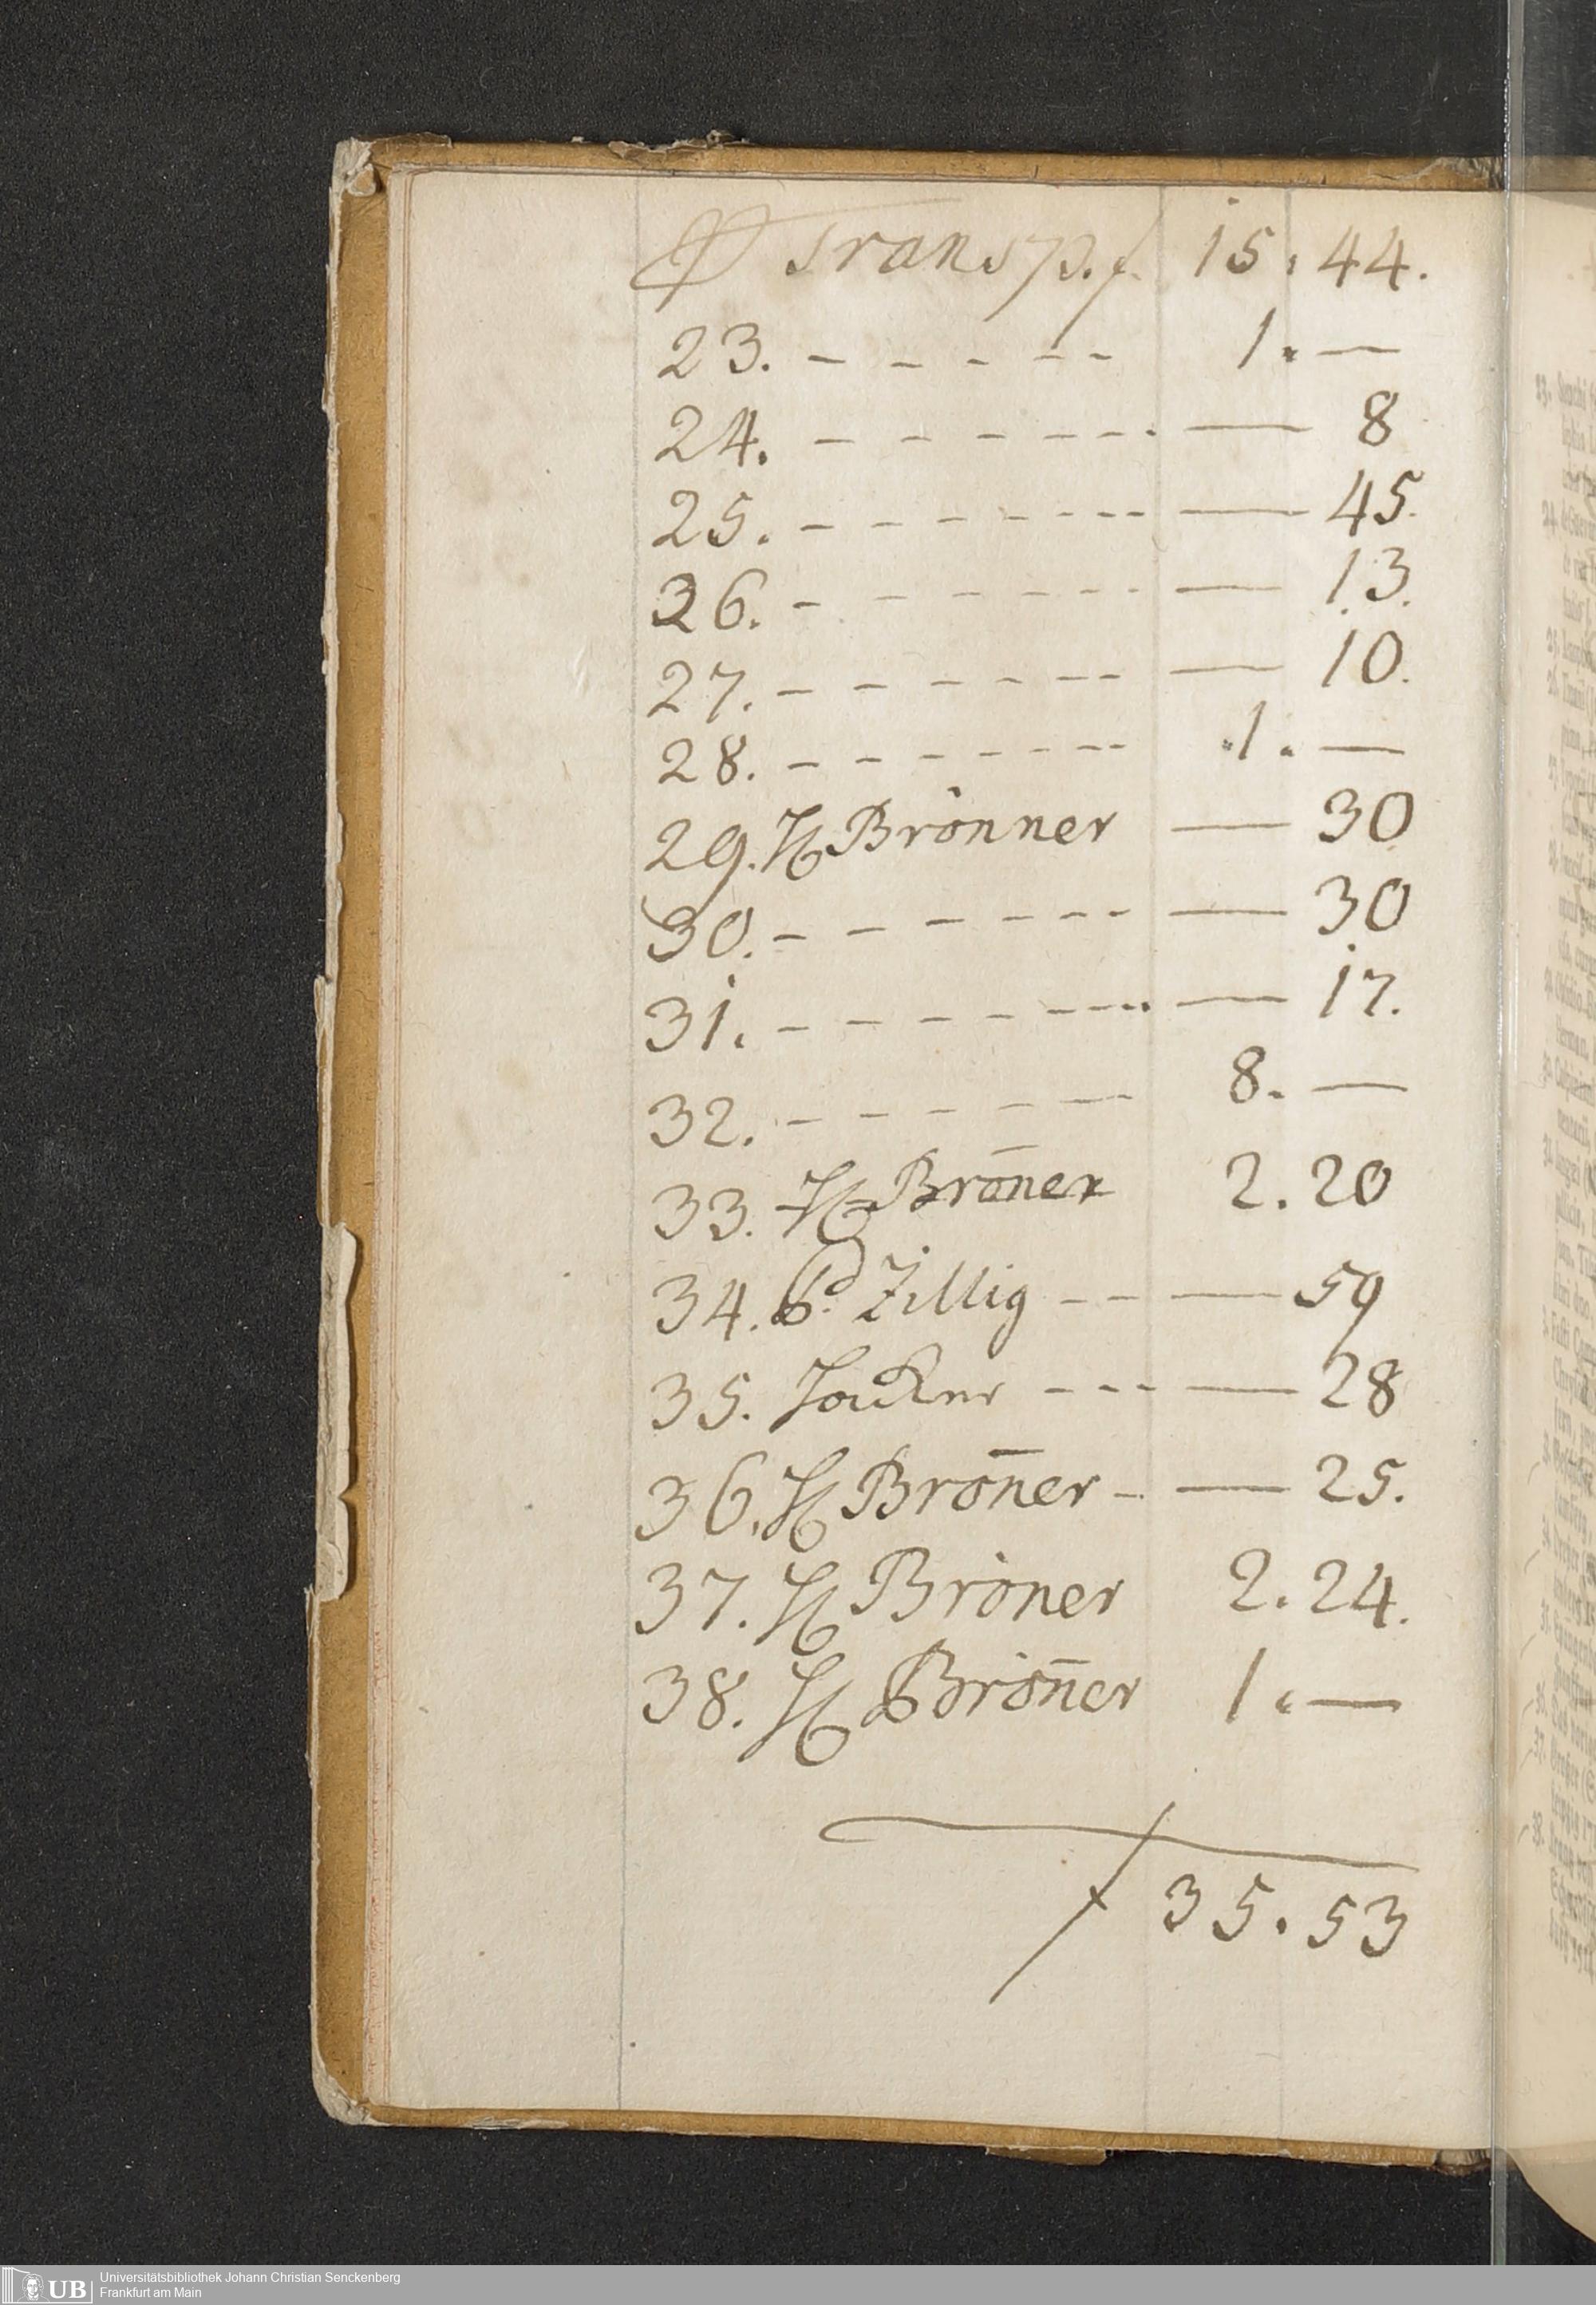 Transp. f. 15. 44.
23. - - - - - 1. —
24. - - - - - - — 8
25. - - - - - - - — 45.
26. - - - - - - — 13.
27. - - - - - - — 10.
28. - - - - - - - 1. —
29. H Brönner — 30
30. - - - - - - — 30
31. - - - - - - - — 17.
32. - - - - - - 8. —
33. H Brön̄er 2. 20
34. Zillig - - — 59
35. - - - — 28
36. H Brön̄er - — 25.
37. H Bröner 2. 24.
38. H Brön̄er 1. —
f 35. 53
UB Universitätsbibliothek Johann Christian Senckenberg
Frankfurt am Main